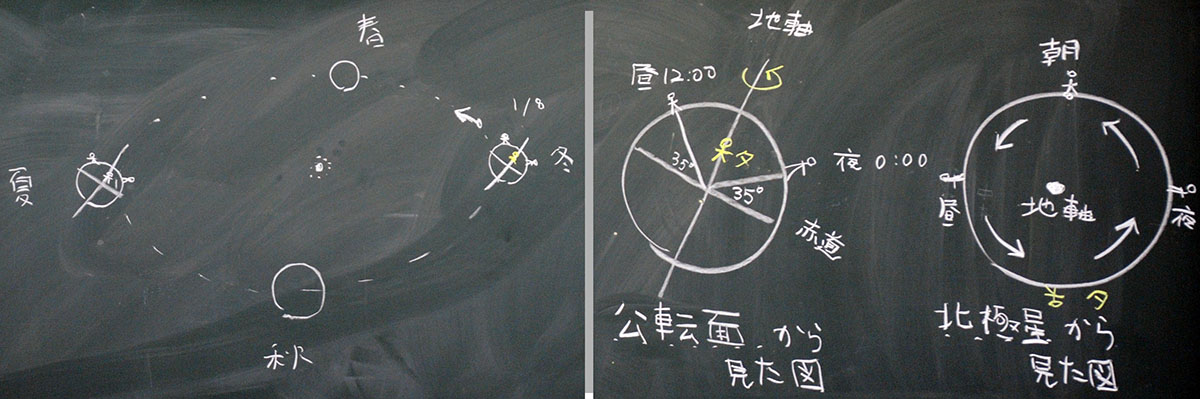 春
1/8
夏
冬
秋
地軸
昼12:00
35°
夕
夜 0:00
35°
赤道
公転面から
見た図
朝
昼
地軸
夜
夕
北極星から
見た図